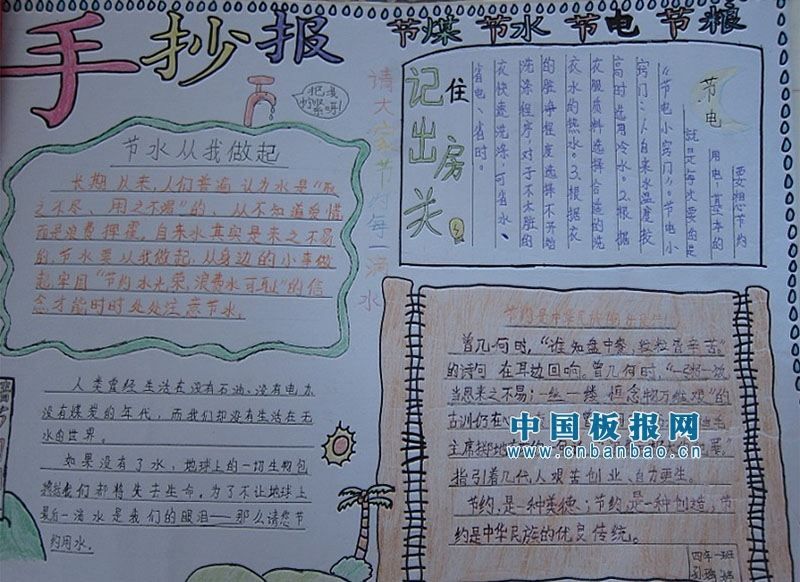 手抄报
节煤 节水 节电 节粮
把我拧紧呀!
节水从我做起
长期以来,人们普遍认为水是“取
之不尽、用之不竭”的、从不知道爱惜
而是浪费挥霍。自来水其实是来之不易
的,节水要以我做起,从身边的小事做
起,牢固“节约水光荣,浪费水可耻”的信
念,才能时时处处注意节水。
请大家节约每一滴水
人类曾经生活在没有石油、没有电力
没有煤炭的年代,而我们却没有生活在无
水的世界。
如果没有了水,地球上的一切生物包
我们都将失去生命。为了不让地球上
最后一滴水是我们的眼泪——那么请您节
约用水。
记住
出房
关
节电
要想节约
用电,基本的
就是每次要的是
“节电小窍门”。节电小
窍门:1.自来水温度较
高时选用冷水。2.根据
衣服质料选择合适的洗
衣水的热水。3.根据衣
的脏净程度选择不开始
洗涤程序,对于不太脏的
衣快速洗涤,可省水、
省电、省时。
节约是中华民族的
曾几何时,“谁知盘中餐,粒粒皆辛苦”
的诗句在耳边回响。曾几何时,“一粥一饭
当思来之不易;一丝一缕恒念物力维艰”的
古训仍在
主席掷地
指引着几代人艰苦创业、自力更生。
节约,是一种美德;节约,是一种创造;节
约是中华民族的优良传统。
四年一班
中国板报网
www.cnbanbao.cn